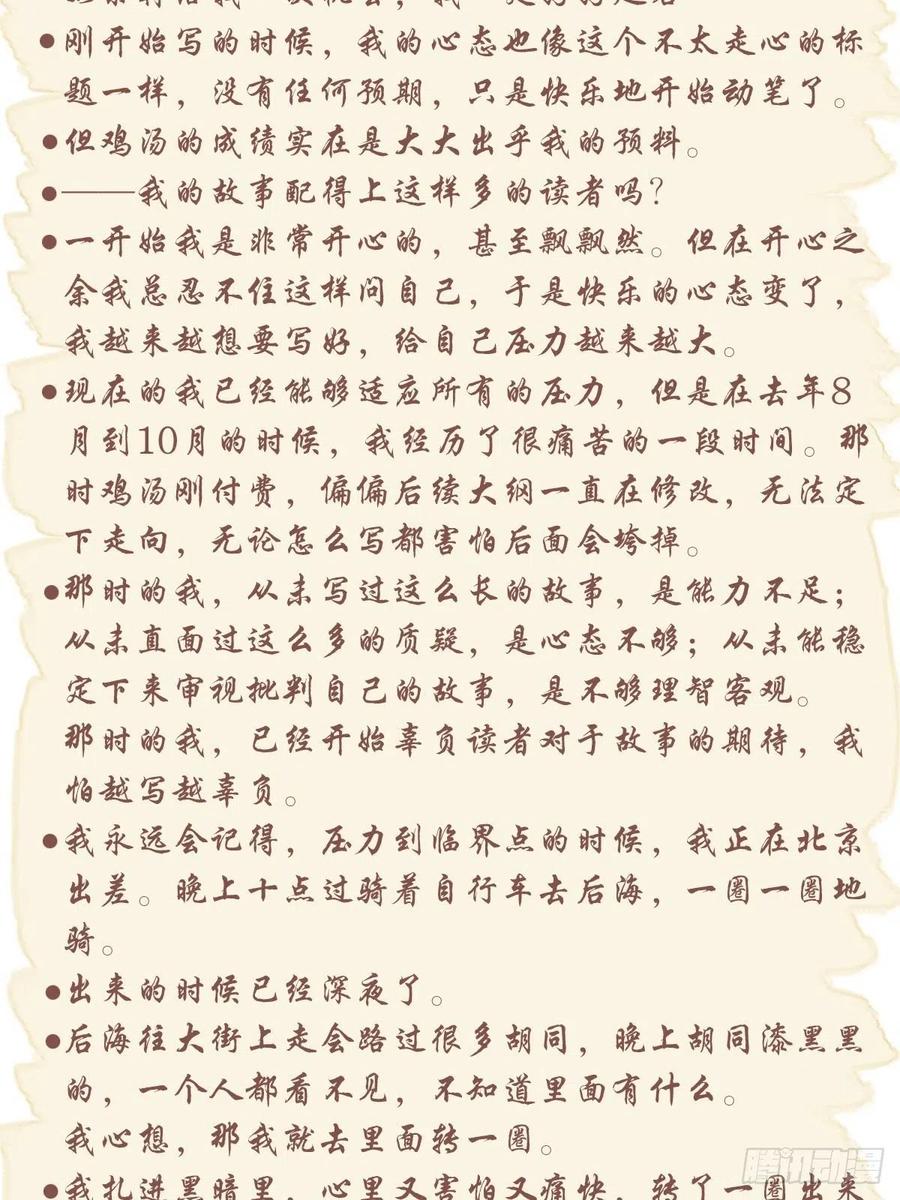 ●刚开始写的时候，我的心态也像这个不太走心的标
题一样，没有任何预期，只是快乐地开始动笔了。
●但鸡汤的成绩实在是大大出乎我的预料。
●——我的故事配得上这样多的读者吗？
●一开始我是非常开心的，甚至飘飘然。但在开心之
余我总忍不住这样问自己，于是快乐的心态变了，
我越来越想要写好，给自己压力越来越大。
●现在的我已经能够适应所有的压力，但是在去年8
月到10月的时候，我经历了很痛苦的一段时间。那
时鸡汤刚付费，偏偏后续大纲一直在修改，无法定
下走向，无论怎么写都害怕后面会垮掉。
●那时的我，从未写过这么长的故事，是能力不足；
从未直面过这么多的质疑，是心态不够；从未能稳
定下来审视批判自己的故事，是不够理智客观。
那时的我，已经开始辜负读者对于故事的期待，我
怕越写越辜负。
●我永远会记得，压力到临界点的时候，我正在北京
出差。晚上十点过骑着自行车去后海，一圈一圈地
骑。
●出来的时候已经深夜了。
●后海往大街上走会路过很多胡同，晚上胡同漆黑黑
的，一个人都看不见，不知道里面有什么。
我心想，那我就去里面转一圈。
●我扎进黑暗里，心里又害怕又痛快，转了一圈出来
腾讯动漫